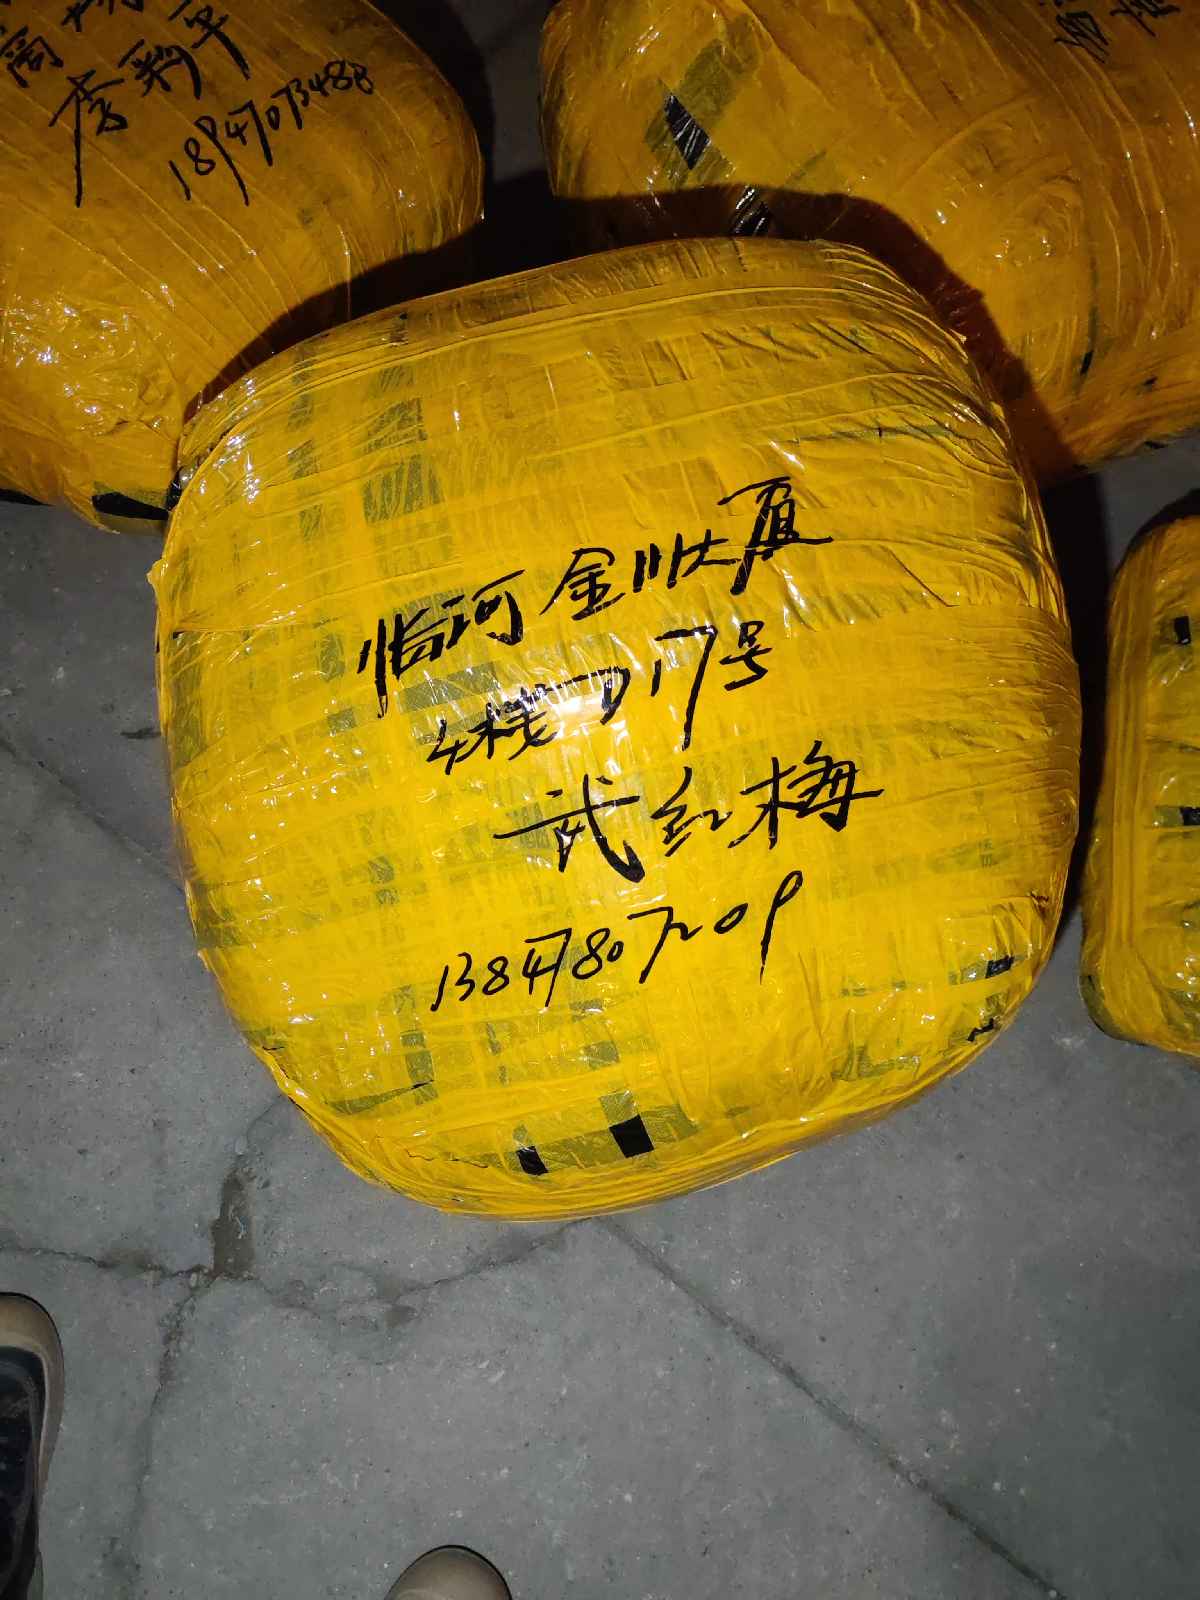 李彩平
18947073488
临河金川大厦
4楼 717号
武红梅
13847807209